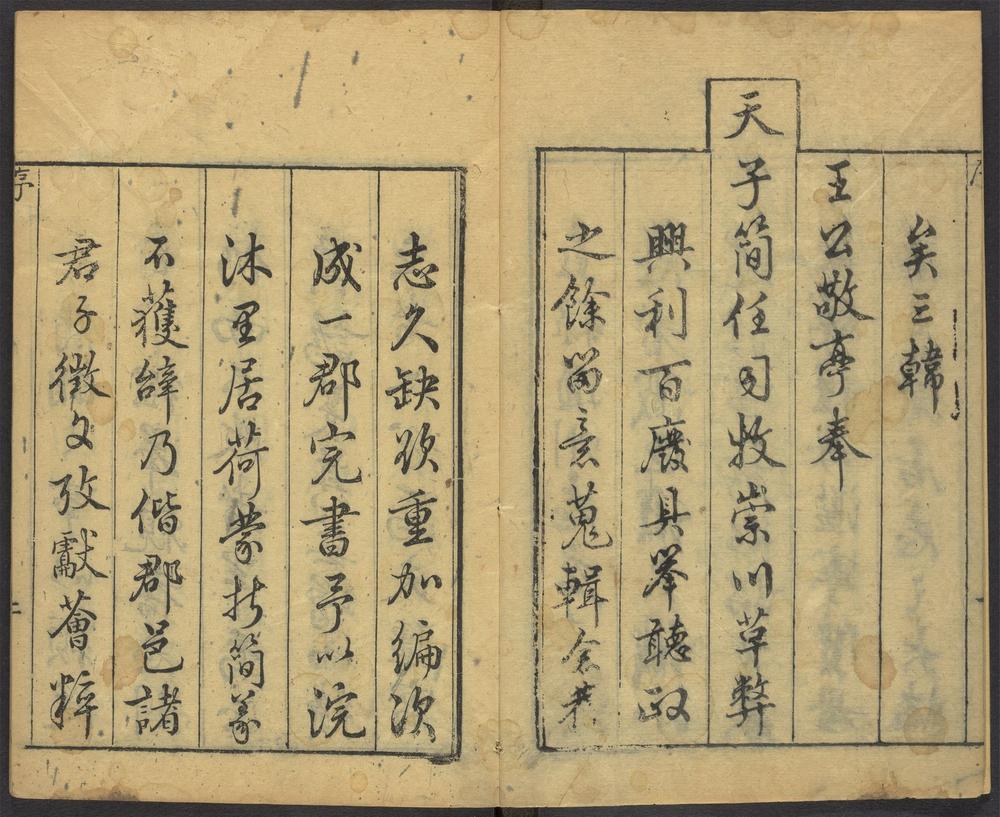 矣三韓
王公敬亭奉
天子簡任司牧崇川革弊
興利百廢具舉聽政
之餘留意蒐輯念
志久缺欲重加編次
成一郡完書予以浣
沐里居荷蒙折簡義
不獲辭乃偕郡邑諸
君子徵文攷獻薈粹
序
二